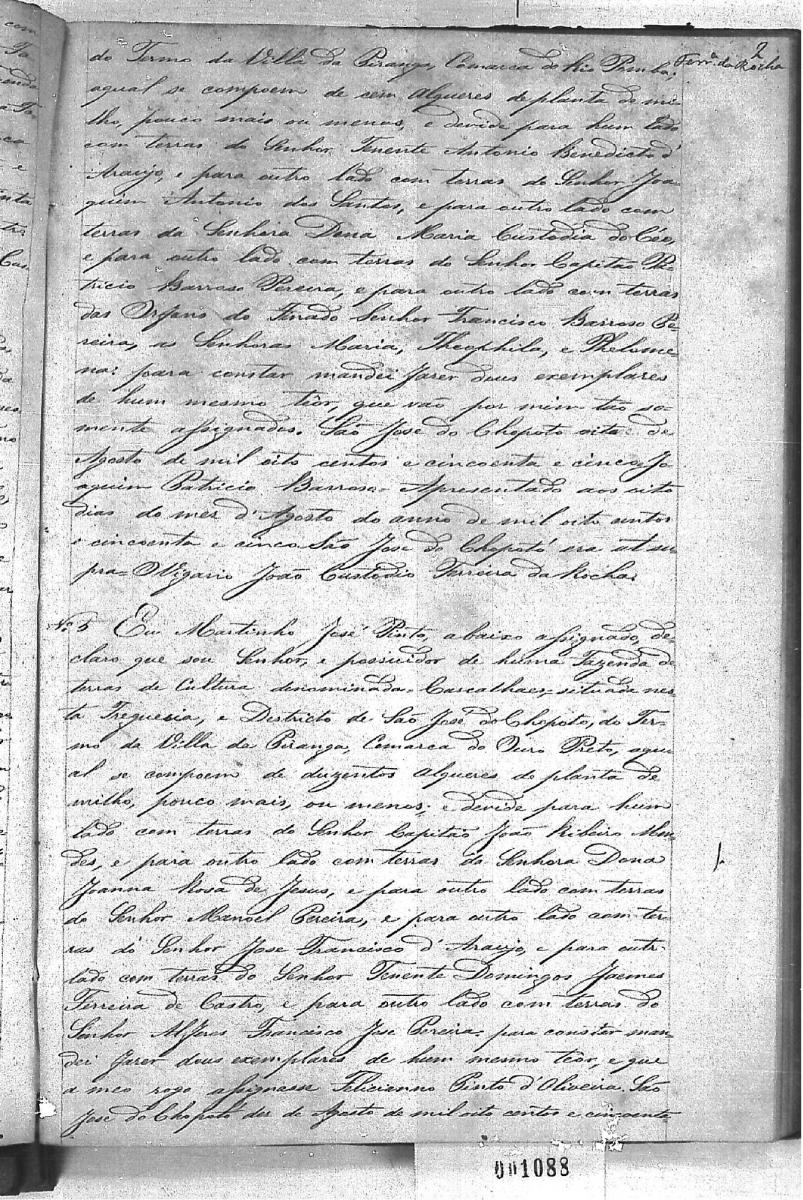 2
Ferr.ª da Rocha
do Termo da Villa da Piranga, Comarca do Rio Pomba,
aqual se compoem de cem Alqueres de planta de mi-
lho, pouco mais ou menos, e devide para hum lado
com terras do Senhor Tenente Antonio Benedicto d'
Araujo, e para outro lado com terras do Senhor Joa-
quim Antonio dos Santos, e para outro lado com
terras da Senhora Dona Maria Custodia do Céo,
e para outro lado com terras do Senhor Capitão Pa-
tricio Barroso Pereira, e para outro lado com terras
das Orfans do Finado Senhor Francisco Barroso Pe-
reira, as Senhoras Maria, Theophila, e Phelome-
na: para constar mandei fazer dous exemplares
de hum mesmo teôr, que vão por mim tão so-
mente assignados. São José do Chopoto oito de
Agosto de mil oito centos e cincoenta e cinco. Jo-
aquim Patricio Barroso. Apresentado aos oito
dias do mez d'Agosto do anno de mil oito centos
e cincoenta e cinco São José do Chopotó era ut su-
pra= OVigario João Custodio Ferreira da Rocha.
Nº 5 Eu Martinho José Pinto, abaixo assignado, de-
claro que sou Senhor, e possuidor de huma Fazenda de
terras de Cultura denominada= Cascalhaes= situada nes-
ta Freguesia, e Districto de São José do Chopoto, do Ter-
mo da Villa da Piranga, Comarca do Ouro Preto, aqu-
al se compoem de duzentos Alqueres de planta de
milho, pouco mais, ou menos; e devide para hum
lado com terras do Senhor Capitão João Ribeiro Men-
des, e para outro lado com terras da Senhora Dona
Joanna Rosa de Jesus, e para outro lado com terras
do Senhor Manoel Pereira, e para outro lado com ter-
ras do Senhor Jose Francisco d'Araujo, e para outr.
lado com terras do Senhor Tenente Domingos
Ferreira de Castro, e para outro lado com terras do
Senhor Alferes Francisco Jose Pereira= para constar man-
dei fazer dous exemplares de hum mesmo teôr, e que
a meo rogo assignasse Felicianno Pinto d'Oliveira. São
Jose do Chopoto dez de Agosto de mil oito centos e cincoenta
001088